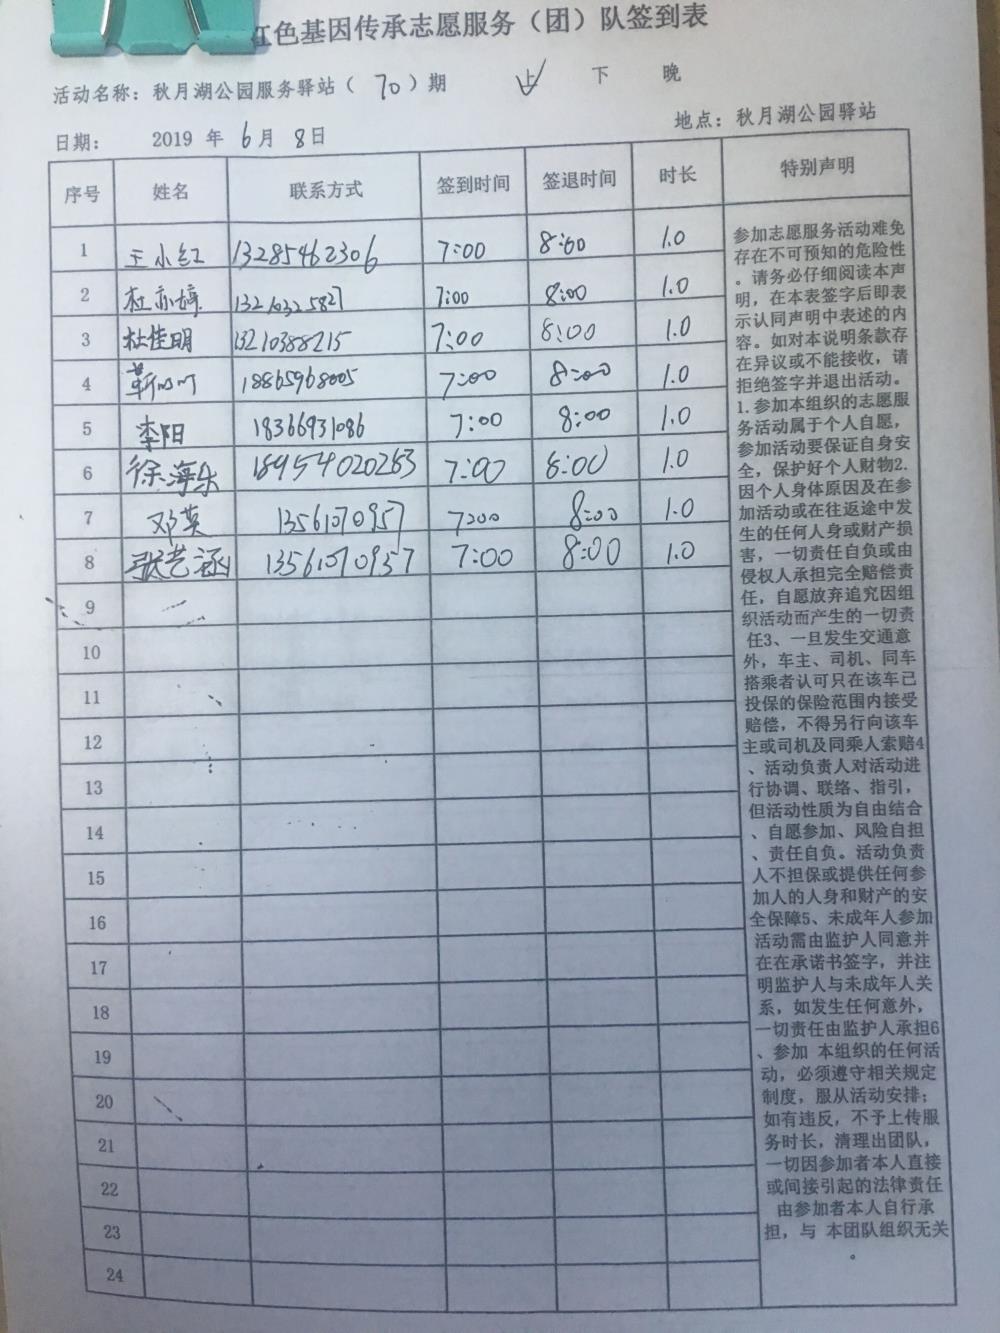 红色基因传承志愿服务（团）队签到表
活动名称：秋月湖公园服务驿站（70）期 上 下 晚
日期： 2019 年 6月 8日 地点：秋月湖公园驿站
序号 姓名 联系方式 签到时间 签退时间 时长 特别声明
1 王小红 13285462306 7:00 8:00 1.0
2 杜亦婷 13210325827 7:00 8:00 1.0
3 杜佳明 13210388215 7:00 8:00 1.0
4 靳叶叶 18865968005 7:00 8:00 1.0
5 李阳 18366931086 7:00 8:00 1.0
6 徐海乐 18954020263 7:00 8:00 1.0
7 邓英 13561070957 7:00 8:00 1.0
8 张艺涵 13561070957 7:00 8:00 1.0
9
10
11
12
13
14
15
16
17
18
19
20
21
22
23
24
参加志愿服务活动难免
存在不可预知的危险性
。请务必仔细阅读本声
明，在本表签字后即表
示认同声明中表述的内
容。如对本说明条款存
在异议或不能接收，请
拒绝签字并退出活动。
1.参加本组织的志愿服
务活动属于个人自愿，
参加活动要保证自身安
全，保护好个人财物2.
因个人身体原因及在参
加活动或在往返途中发
生的任何人身或财产损
害，一切责任自负或由
侵权人承担完全赔偿责
任，自愿放弃追究因组
织活动而产生的一切责
任3、一旦发生交通意
外，车主、司机、同车
搭乘者认可只在该车已
投保的保险范围内接受
赔偿，不得另行向该车
主或司机及同乘人索赔4
、活动负责人对活动进
行协调、联络、指引，
但活动性质为自由结合
、自愿参加、风险自担
、责任自负。活动负责
人不担保或提供任何参
加人的人身和财产的安
全保障5、未成年人参加
活动需由监护人同意并
在在承诺书签字，并注
明监护人与未成年人关
系，如发生任何意外，
一切责任由监护人承担6
、参加 本组织的任何活
动，必须遵守相关规定
制度，服从活动安排；
如有违反，不予上传服
务时长，清理出团队，
一切因参加者本人直接
或间接引起的法律责任
由参加者本人自行承
担，与 本团队组织无关
。